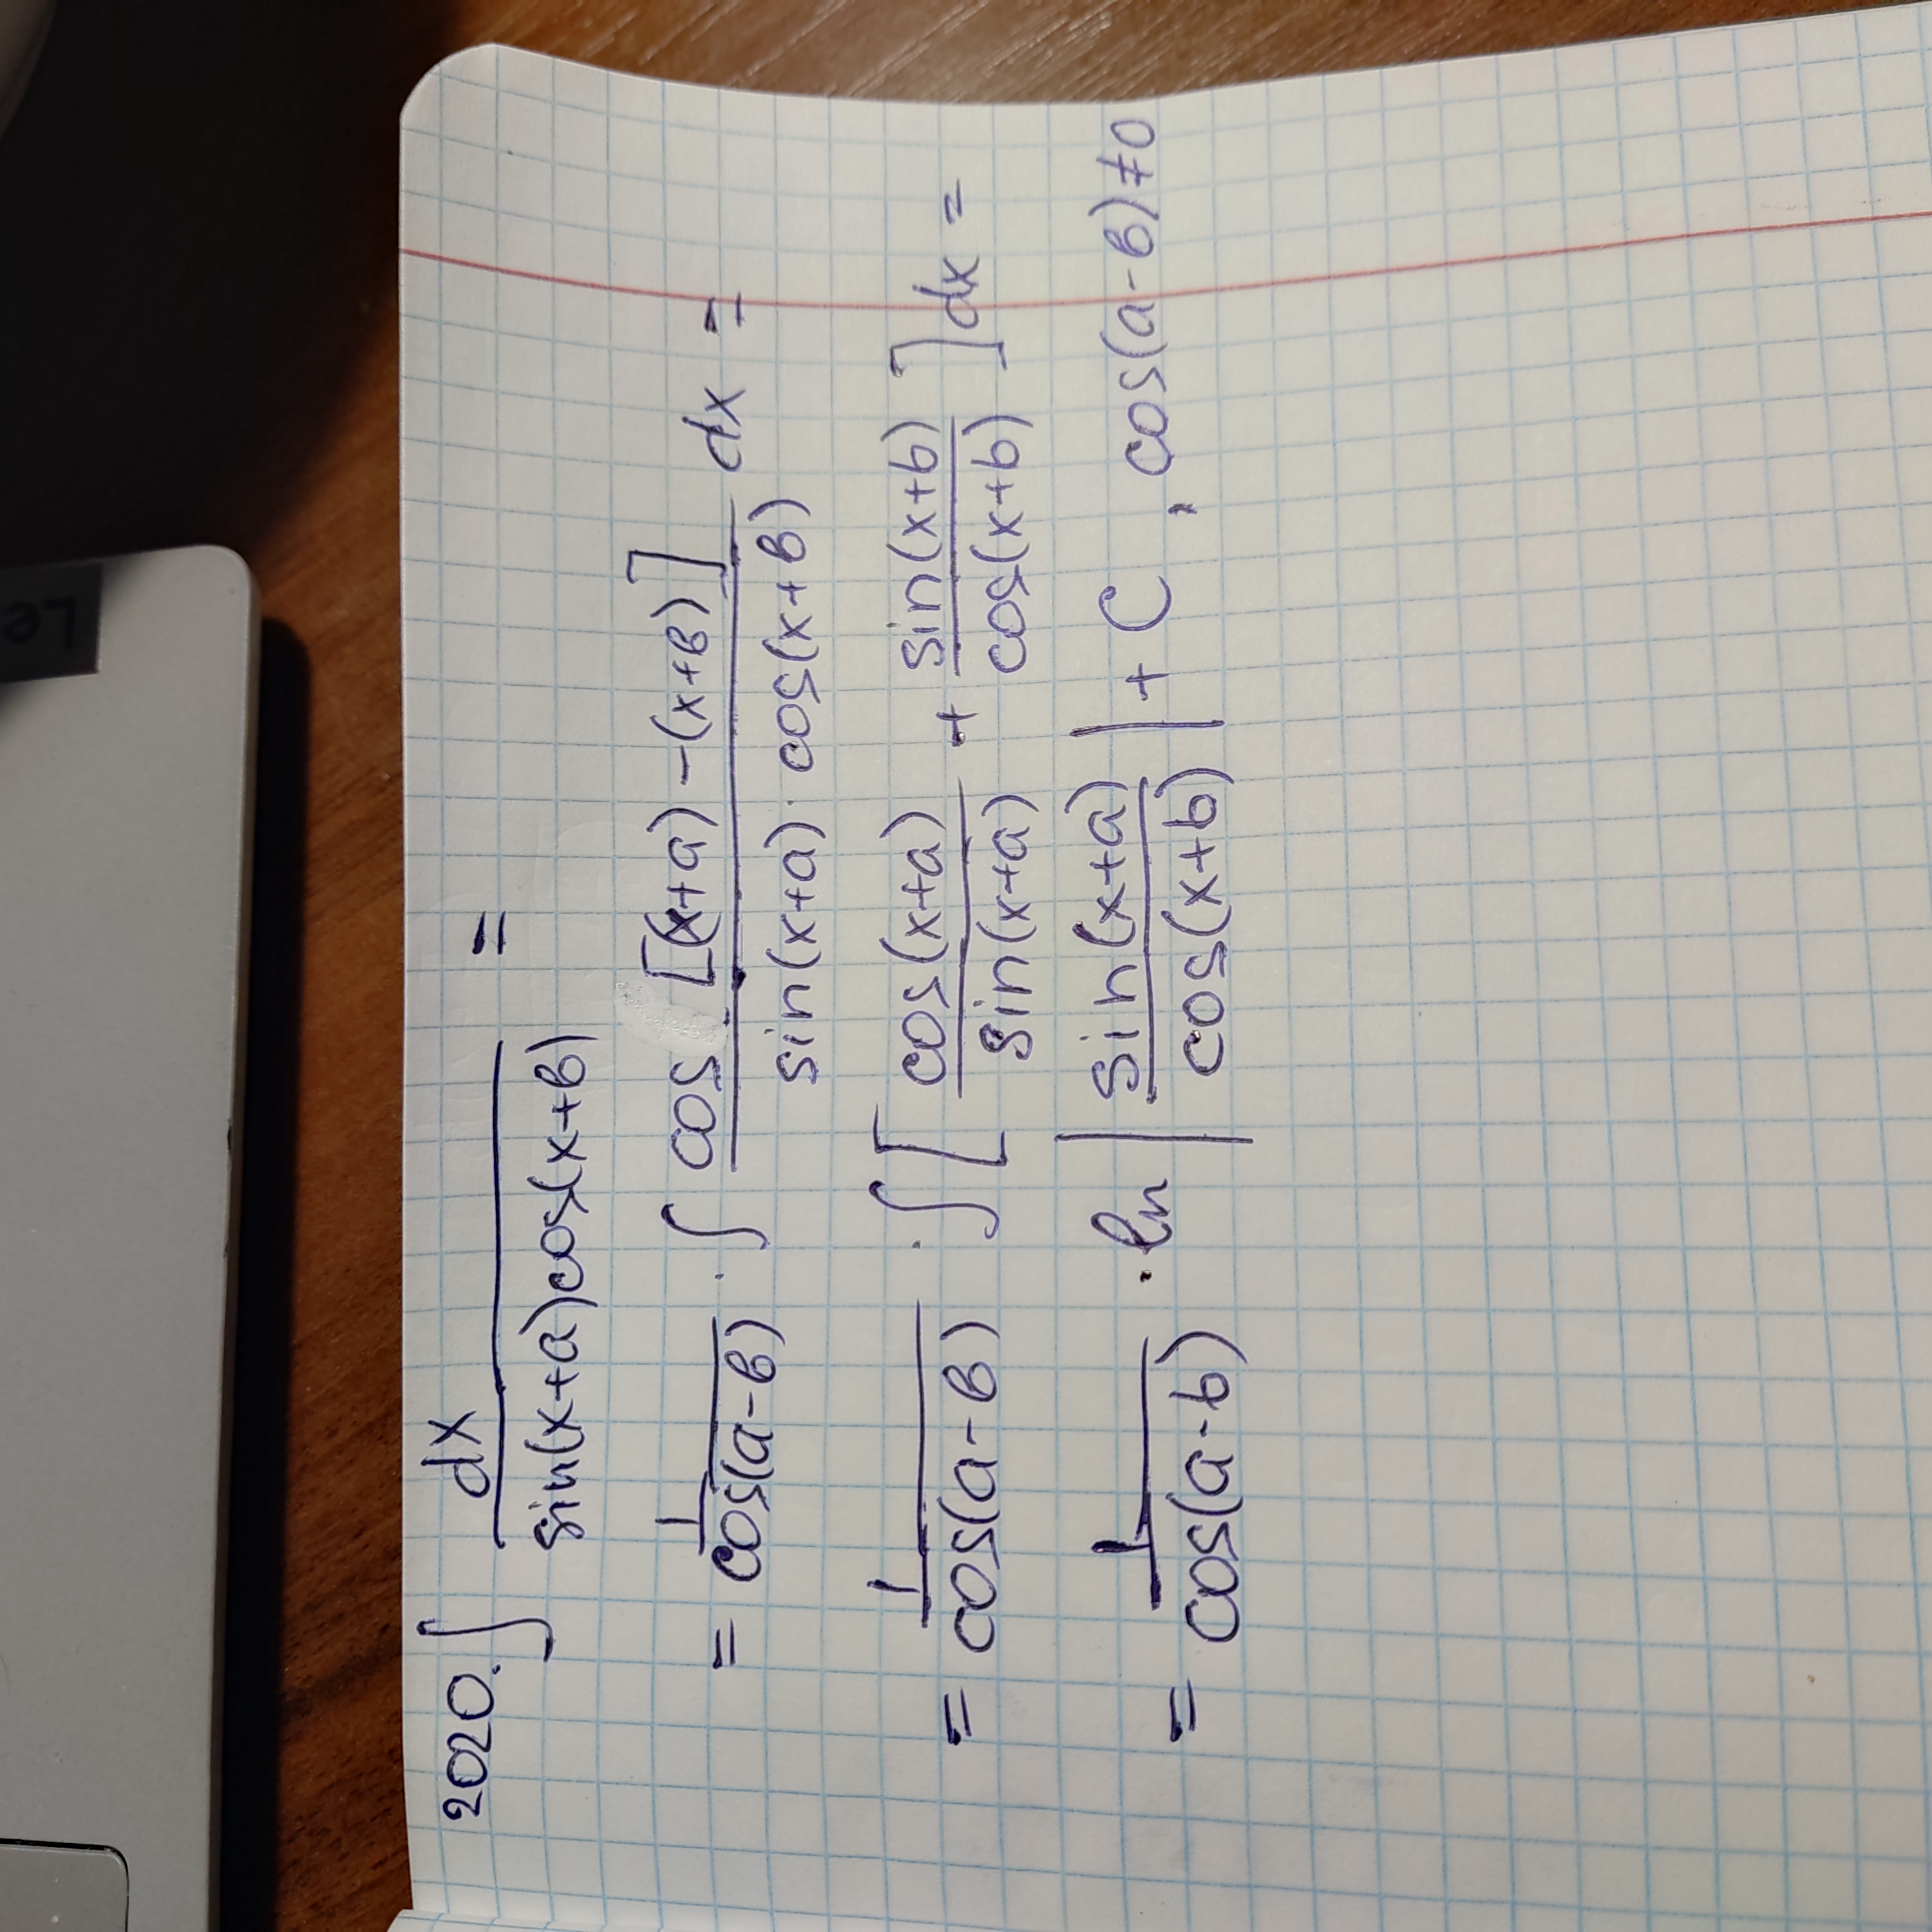 Le
2020. ∫ dx / sin(x+a)cos(x+b) =
= 1/cos(a-b) · ∫ cos [(x+a)-(x+b)] / sin(x+a) · cos(x+b) dx =
= 1/cos(a-b) · ∫ [ cos(x+a)/sin(x+a) + sin(x+b)/cos(x+b) ] dx =
= 1/cos(a-b) · ln | sin(x+a)/cos(x+b) | + C , cos(a-b)≠0